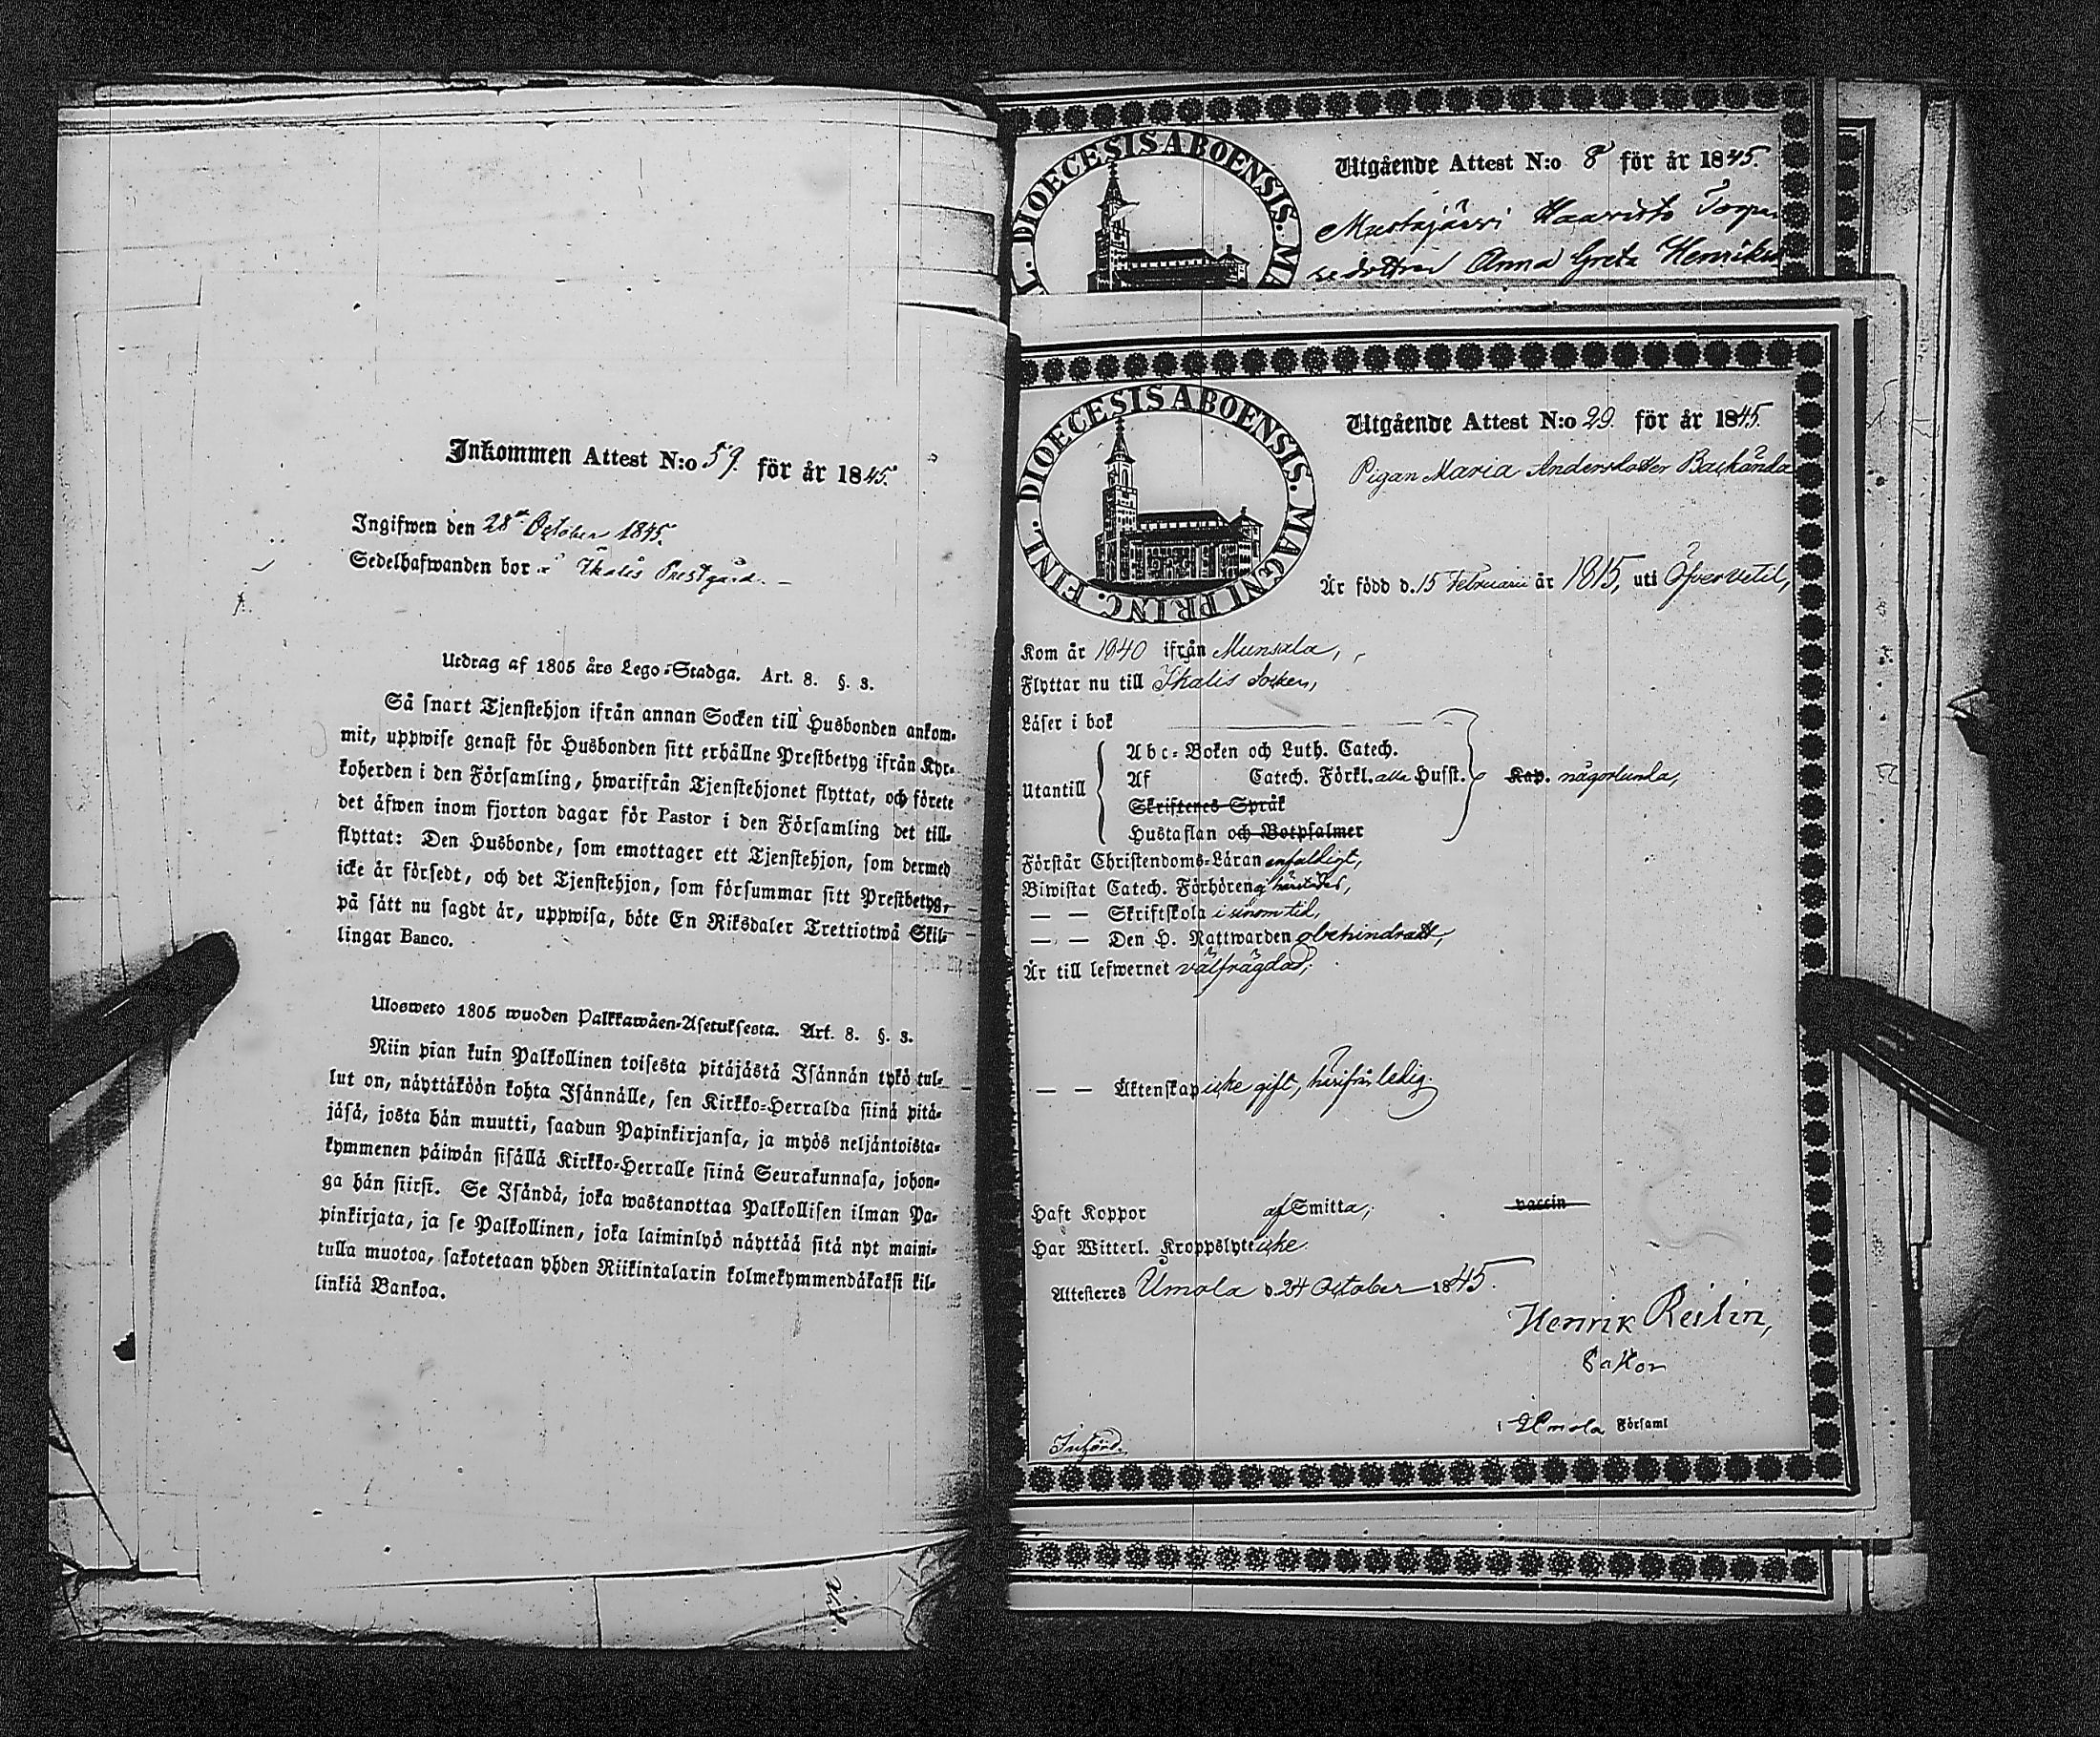 Inkommen Attest N:o 59. för år 1845.
Ingifwen den 28 October 1845.
Sedelhafwanden bor i Ikalis Prestgård. —
Utdrag af 1805 års Lego-Stadga. Art. 8. §. 3.
Så snart Tjenstehjon ifrån annan Socken till Husbonden ankom-
mit, uppwise genast för Husbonden sitt erhållne Prestbetyg ifrån Kyr-
koherden i den Församling, hwarifrån Tjenstehjonet flyttat, och förete
det äfwen inom fjorton dagar för Pastor i den Församling det till-
flyttat: Den Husbonde, som emottager ett Tjenstehjon, som dermed
icke är försedt, och det Tjenstehjon, som försummar sitt Prestbetyg,
på sätt nu sagdt är, uppwisa, böte En Riksdaler Trettiotwå Skil-
lingar Banco.
Ulosweto 1805 wuoden Palkkawäen-Asetuksesta. Art. 8. §. 3.
Niin pian kuin Palkollinen toisesta pitäjästä Isännän tykö tul-
lut on, näyttäköön kohta Isännälle, sen Kirkko-Herralda siinä pitä-
jäsä, josta hän muutti, saadun Papinkirjansa, ja myös neljäntoista-
kymmenen päiwän sisällä Kirkko-Herralle siinä Seurakunnasa, johon-
ga hän siirsi. Se Isändä, joka wastanottaa Palkollisen ilman Pa-
pinkirjata, ja se Palkollinen, joka laiminlyö näyttää sitä nyt maini-
tulla muotoa, sakotetaan yhden Riikintalarin kolmekymmendäkaksi kil-
linkiä Bankoa.
L. DIOECESIS ABOENSIS. MA
Utgående Attest N:o 8 för år 1845.
Mustajärvi Haaristo Torpa
Anna Greta Henriks
DIOECESIS ABOENSIS. MAGNI PRINC. FINL.
Utgående Attest N:o 29. för år 1845.
Pigan Maria Andersdotter Backända
Är född d. 15 Februarii år 1815, uti Öfvervetil,
Kom år 1840 ifrån Munsala,
Flyttar nu till Ikalis Socken,
Läser i bok
Utantill
Abc-Boken och Luth. Catech.
Af Catech. Förkl. alla Husst. Kap. någorlunda,
Skriftenes Språk
Hustaflan och Botpsalmer
Förstår Christendoms-Läran enfaldigt,
Biwistat Catech. Förhören härstädes,
— — Skriftskola i sinom tid,
— — Den H. Nattwarden obehindradt,
Är till lefwernet välfrägdad,
— — Äktenskap icke gift, härifrån ledig.
Haft Koppor af Smitta, vaccin
Har Witterl. Kroppslyte icke.
Attesteres Umola d. 24 October 1845.
Henrik Reilin,
Pastor
i Umola Församl
Införd.